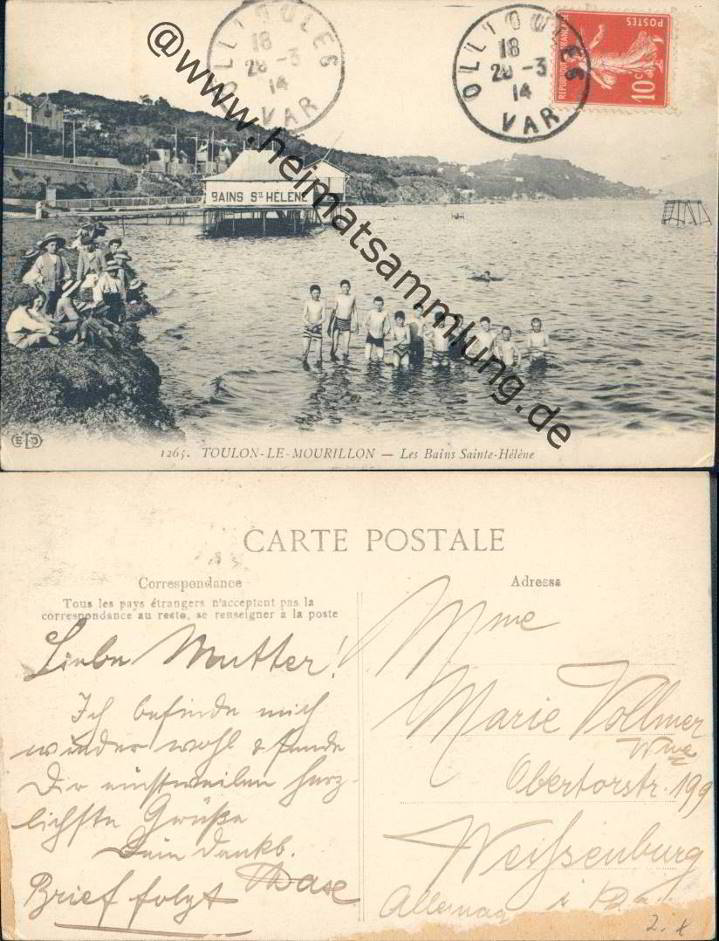 OLLIOULES
18
28 -3
14
VAR
OLLIOULES
18
28 -3
14
VAR
POSTES
10c
@www.heimatsammlung.de
BAINS Ste HÉLÈNE
ELD
1265. TOULON-LE-MOURILLON — Les Bains Sainte-Hélène
CARTE POSTALE
Correspondance
Tous les pays étrangers n'acceptent pas la
correspondance au resto, se renseigner à la poste
Liebe Mutter!
Ich befinde mich
wieder wohl & sende
Dir einstweilen herz-
lichste Grüße
Dein dankb.
Brief folgt
Adresse
Mme
Marie Vollmer
Wwe
Obertorstr. 199
Weissenburg
i Ba.
Allemag